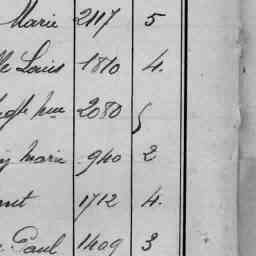 Marie 2117 5
Louis 1810 4.
2080 5
Marie 940 2
1712 4.
Paul 1409 3